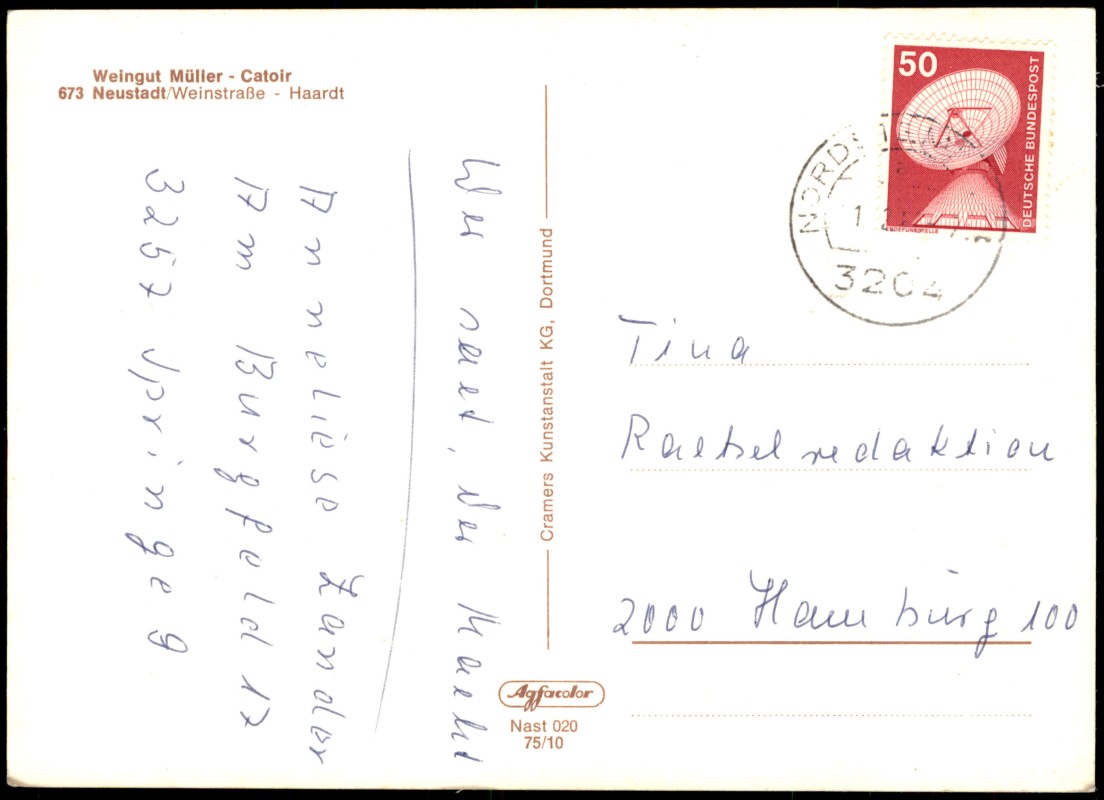 Weingut Müller - Catoir
673 Neustadt/Weinstraße - Haardt
Wer saet, der maeht
Anneliese Zandor
Am Burgfeld 17
3257 Springe 9
Cramers Kunstanstalt KG, Dortmund
Agfacolor
Nast 020
75/10
50
DEUTSCHE BUNDESPOST
ERDEFUNKSTELLE
NORD
3204
Tina
Raetselredaktion
2000 Hamburg 100